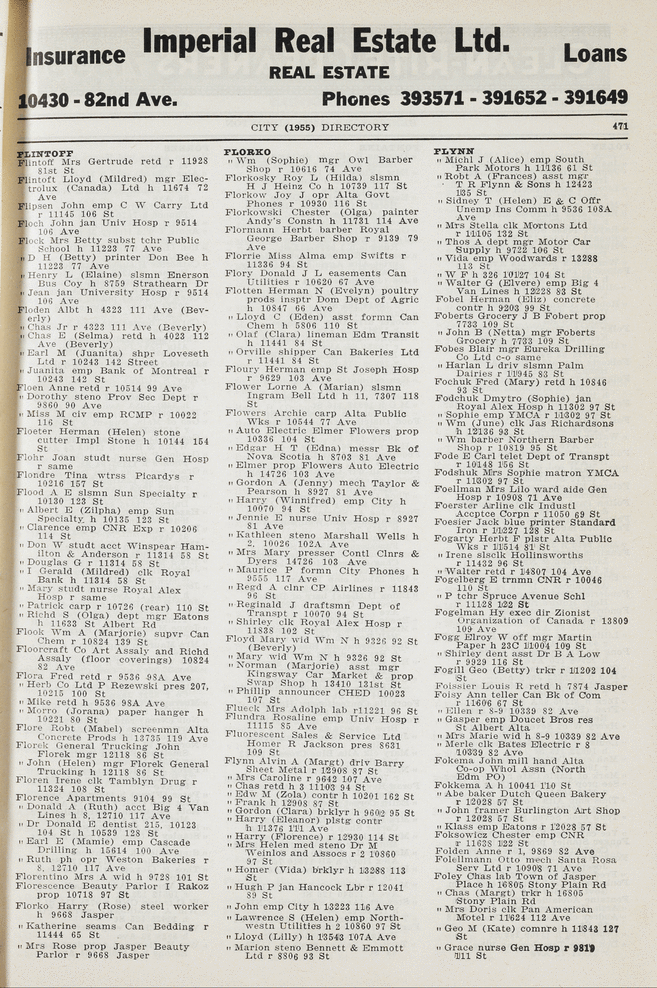 Insurance Imperial Real Estate Ltd. Loans
REAL ESTATE
10430 - 82nd Ave. Phones 393571 - 391652 - 391649
CITY (1955) DIRECTORY 471
FLINTOFF
Flintoff Mrs Gertrude retd r 11928
81st St
Flintoft Lloyd (Mildred) mgr Elec-
trolux (Canada) Ltd h 11674 72
Ave
Flipsen John emp C W Carry Ltd
r 11145 106 St
Floch John jan Univ Hosp r 9514
106 Ave
Flock Mrs Betty subst tchr Public
School h 11223 77 Ave
" D H (Betty) printer Don Bee h
11223 77 Ave
" Henry L (Elaine) slsmn Enerson
Bus Coy h 8759 Strathearn Dr
" Jean jan University Hosp r 9514
106 Ave
Floden Albt h 4323 111 Ave (Bev-
erly)
" Chas Jr r 4323 111 Ave (Beverly)
" Chas E (Selma) retd h 4023 112
Ave (Beverly)
" Earl M (Juanita) shpr Loveseth
Ltd r 10243 142 Street
" Juanita emp Bank of Montreal r
10243 142 St
Floen Anne retd r 10514 99 Ave
" Dorothy steno Prov Sec Dept r
9860 90 Ave
" Miss M civ emp RCMP r 10022
116 St
Floeter Herman (Helen) stone
cutter Impl Stone h 10144 154
St
Flohr Joan studt nurse Gen Hosp
r same
Flondre Tina wtrss Picardys r
10216 157 St
Flood A E slsmn Sun Specialty r
10130 123 St
" Albert E (Zilpha) emp Sun
Specialty h 10135 123 St
" Clarence emp CNR Exp r 10206
114 St
" Don W studt acct Winspear Ham-
ilton & Anderson r 11314 58 St
" Douglas G r 11314 58 St
" I Gerald (Mildred) clk Royal
Bank h 11314 58 St
" Mary studt nurse Royal Alex
Hosp r same
" Patrick carp r 10726 (rear) 110 St
" Richd S (Olga) dept mgr Eatons
h 11633 St Albert Rd
Flook Wm A (Marjorie) supvr Can
Chem r 10824 139 St
Floorcraft Co Art Assaly and Richd
Assaly (floor coverings) 10824
82 Ave
Flora Fred retd r 9536 98A Ave
" Herb Co Ltd P Rezewski pres 207,
10215 100 St
" Mike retd h 9536 98A Ave
" Morro (Jorana) paper hanger h
10221 80 St
Flore Robt (Mabel) screenmn Alta
Concrete Prods h 13735 119 Ave
Florek General Trucking John
Florek mgr 12118 86 St
" John (Helen) mgr Florek General
Trucking h 12118 86 St
Floren Irene clk Tamblyn Drug r
11324 108 St
Florence Apartments 9104 99 St
" Donald A (Ruth) acct Big 4 Van
Lines h 8, 12710 117 Ave
" Dr Donald E dentist 215, 10123
104 St h 10539 128 St
" Earl E (Mamie) emp Cascade
Drilling h 15614 100 Ave
" Ruth ph opr Weston Bakeries r
8, 12710 117 Ave
Florentino Mrs A wid h 9728 101 St
Florescence Beauty Parlor I Rakoz
prop 10718 97 St
Florko Harry (Rose) steel worker
h 9668 Jasper
" Katherine seams Can Bedding r
11444 65 St
" Mrs Rose prop Jasper Beauty
Parlor r 9668 Jasper
FLORKO
" Wm (Sophie) mgr Owl Barber
Shop r 10616 74 Ave
Florkosky Roy L (Hilda) slsmn
H J Heinz Co h 10739 117 St
Florkow Joy J opr Alta Govt
Phones r 10930 116 St
Florkowski Chester (Olga) painter
Andy's Constn h 11731 114 Ave
Flormann Herbt barber Royal
George Barber Shop r 9139 79
Ave
Florrie Miss Alma emp Swifts r
11336 94 St
Flory Donald J L easements Can
Utilities r 10620 67 Ave
Flotten Herman N (Evelyn) poultry
prods insptr Dom Dept of Agric
h 10847 66 Ave
" Lloyd C (Eden) asst formn Can
Chem h 5806 110 St
" Olaf (Clara) lineman Edm Transit
h 11441 84 St
" Orville shipper Can Bakeries Ltd
r 11441 84 St
Floury Herman emp St Joseph Hosp
r 9629 103 Ave
Flower Lorne A (Marian) slsmn
Ingram Bell Ltd h 11, 7307 118
St
Flowers Archie carp Alta Public
Wks r 10544 77 Ave
" Auto Electric Elmer Flowers prop
10336 104 St
" Edgar H T (Edna) messr Bk of
Nova Scotia h 8703 81 Ave
" Elmer prop Flowers Auto Electric
h 14726 103 Ave
" Gordon A (Jenny) mech Taylor &
Pearson h 8927 81 Ave
" Harry (Winnifred) emp City h
10070 94 St
" Jennie E nurse Univ Hosp r 8927
81 Ave
" Kathleen steno Marshall Wells h
2, 10026 102A Ave
" Mrs Mary presser Contl Clnrs &
Dyers 14726 103 Ave
" Maurice P formn City Phones h
9555 117 Ave
" Regd A clnr CP Airlines r 11843
96 St
" Reginald J draftsmn Dept of
Transpt r 10070 94 St
" Shirley clk Royal Alex Hosp r
11838 102 St
Floyd Mary wid Wm N h 9326 92 St
(Beverly)
" Mary wid Wm N h 9326 92 St
" Norman (Marjorie) asst mgr
Kingsway Car Market & prop
Swap Shop h 13410 121st St
" Phillip announcer CHED 10023
107 St
Flueck Mrs Adolph lab r11221 96 St
Flundra Rosalina emp Univ Hosp r
11115 85 Ave
Fluorescent Sales & Service Ltd
Homer R Jackson pres 8631
109 St
Flynn Alvin A (Margt) driv Barry
Sheet Metal r 12908 87 St
" Mrs Caroline r 9642 107 Ave
" Chas retd h 3 11103 94 St
" Edw M (Zola) contr h 10201 162 St
" Frank h 12908 87 St
" Gordon (Clara) brklyr h 9602 95 St
" Harry (Eleanor) plstg contr
h 11376 111 Ave
" Harry (Florence) r 12930 114 St
" Mrs Helen med steno Dr M
Weinlos and Assocs r 2 10860
97 St
" Homer (Vida) brklyr h 13288 113
St
" Hugh P jan Hancock Lbr r 12041
89 St
" John emp City h 13223 116 Ave
" Lawrence S (Helen) emp North-
westn Utilities h 2 10860 97 St
" Lloyd (Lilly) h 13543 107A Ave
" Marion steno Bennett & Emmott
Ltd r 8806 93 St
FLYNN
" Michl J (Alice) emp South
Park Motors h 11136 61 St
" Robt A (Frances) asst mgr
T R Flynn & Sons h 12423
135 St
" Sidney T (Helen) E & C Offr
Unemp Ins Comm h 9536 108A
Ave
" Mrs Stella clk Mortons Ltd
r 11105 132 St
" Thos A dept mgr Motor Car
Supply h 9722 106 St
" Vida emp Woodwards r 13288
113 St
" W F h 326 10127 104 St
" Walter G (Elvere) emp Big 4
Van Lines h 12228 83 St
Fobel Herman (Eliz) concrete
contr h 9203 99 St
Foberts Grocery J B Fobert prop
7733 109 St
" John B (Netta) mgr Foberts
Grocery h 7733 109 St
Fobes Blair mgr Eureka Drilling
Co Ltd c-o same
" Harlan L driv slsmn Palm
Dairies r 11945 83 St
Fochuk Fred (Mary) retd h 10846
93 St
Fodchuk Dmytro (Sophie) jan
Royal Alex Hosp h 11302 97 St
" Sophie emp YMCA r 11302 97 St
" Wm (June) clk Jas Richardsons
h 12136 93 St
" Wm barber Northern Barber
Shop r 10819 95 St
Fode E Carl telet Dept of Transpt
r 10148 156 St
Fodshuk Mrs Sophie matron YMCA
r 11302 97 St
Foellman Mrs Lilo ward aide Gen
Hosp r 10908 71 Ave
Foerster Arline clk Industl
Accptce Corpn r 11050 69 St
Foesier Jack blue printer Standard
Iron r 11227 128 St
Fogarty Herbt F plstr Alta Public
Wks r 11514 81 St
" Irene slsclk Hollinsworths
r 11432 96 St
" Walter retd r 14807 104 Ave
Fogelberg E trnmn CNR r 10046
110 St
" P tchr Spruce Avenue Schl
r 11128 122 St
Fogelman Hy exec dir Zionist
Organization of Canada r 13809
109 Ave
Fogg Elroy W off mgr Martin
Paper h 23C 11004 109 St
" Shirley dent asst Dr B A Low
r 9929 116 St
Fogill Geo (Betty) trkr r 11202 104
St
Foissier Louis R retd h 7874 Jasper
Foisy Ann teller Can Bk of Com
r 11606 67 St
" Ellen r 8-9 10339 82 Ave
" Gasper emp Doucet Bros res
St Albert Alta
" Mrs Marie wid h 8-9 10339 82 Ave
" Merle clk Bates Electric r 8
10339 82 Ave
Fokema John mill hand Alta
Co-op Whol Assn (North
Edm PO)
Fokkema A h 10041 110 St
" Abe baker Dutch Queen Bakery
r 12028 57 St
" John framer Burlington Art Shop
r 12028 57 St
" Klass emp Eatons r 12028 57 St
Foksowicz Chester emp CNR
r 11638 122 St
Folden Anne r 1, 9869 82 Ave
Folellmann Otto mech Santa Rosa
Serv Ltd r 10908 71 Ave
Foley Chas lab Town of Jasper
Place h 16805 Stony Plain Rd
" Chas (Margt) trkr h 16805
Stony Plain Rd
" Mrs Doris clk Pan American
Motel r 11624 112 Ave
" Geo M (Kate) comnre h 11843 127
St
" Grace nurse Gen Hosp r 9819
111 St